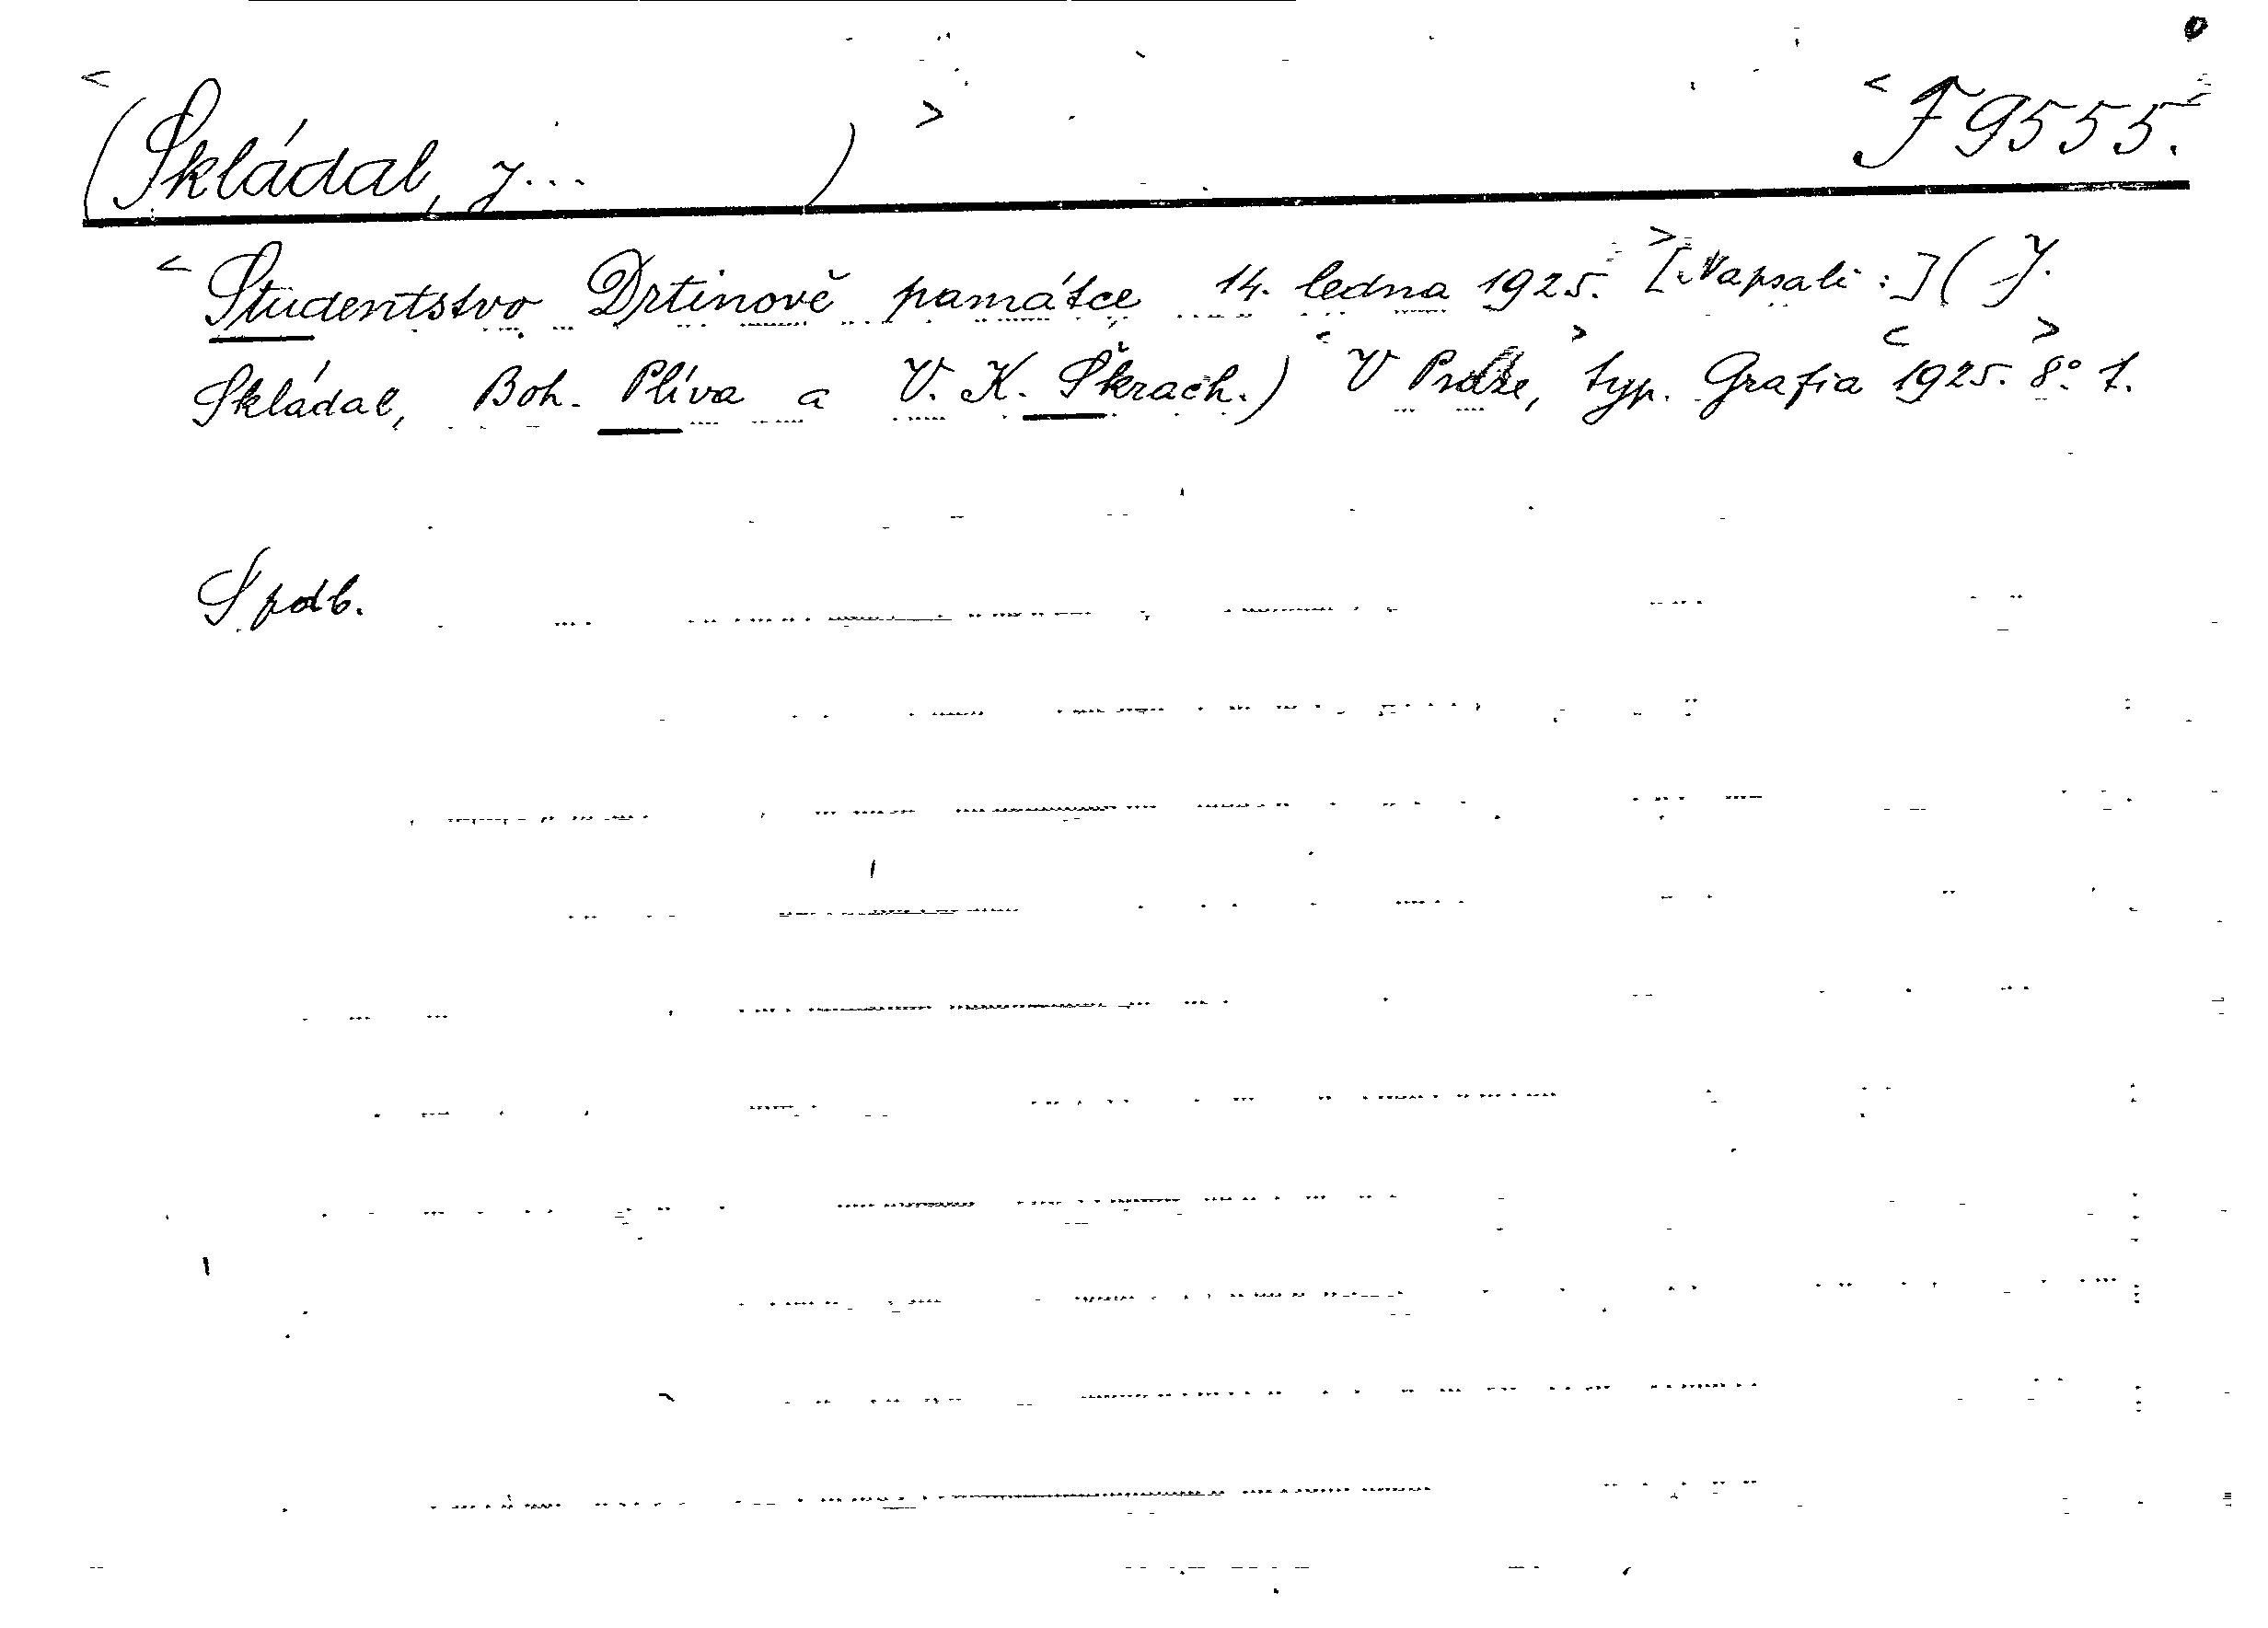 (Skládal, J... ) F 9555.
Studentstvo Drtinově památce 14. ledna 1925. [Napsali:] (J.
Skládal, Boh. Plíva a V. K. Škrach.) V Praze, typ. Grafia 1925. 8°. 1.